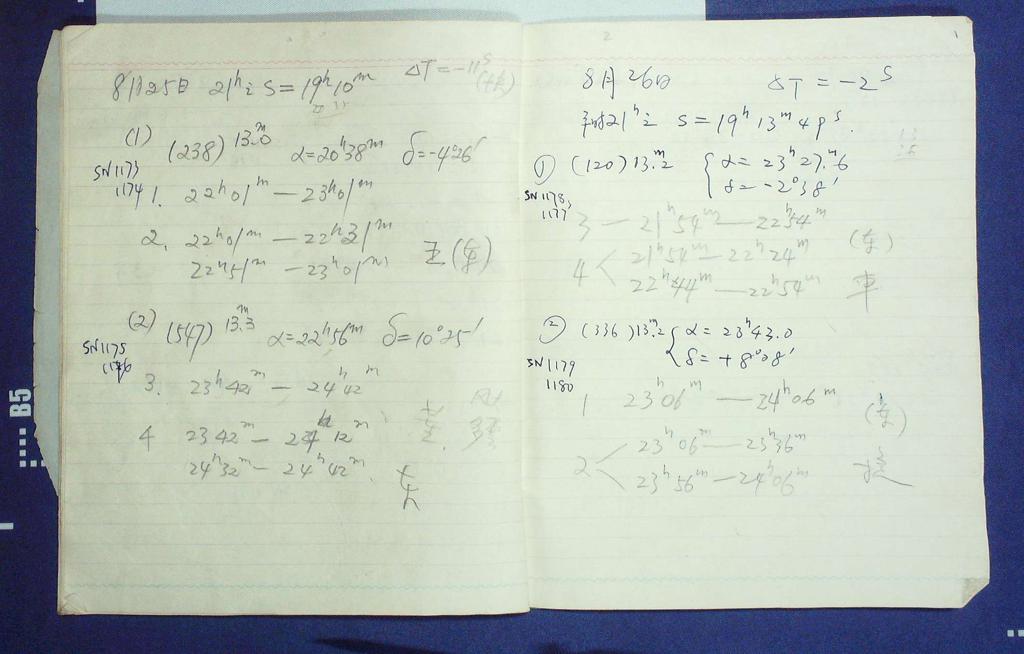 8月25日 21ʰ S=19ʰ10ᵐ ΔT=-11ˢ
(1) (238) 13ᵐ.0 α=20ʰ38ᵐ δ=-4°26′
SN1173
1174
1. 22ʰ01ᵐ — 23ʰ01ᵐ
2. 22ʰ01ᵐ — 22ʰ31ᵐ
22ʰ51ᵐ — 23ʰ01ᵐ
王
(2) (547) 13ᵐ.3 α=22ʰ56ᵐ δ=10°25′
SN1175
1176
3. 23ʰ42ᵐ — 24ʰ42ᵐ
4 23 42ᵐ — 24ʰ12ᵐ
24ʰ32ᵐ — 24ʰ42ᵐ
2
1
8月26日 ΔT=-2ˢ
21ʰ S=19ʰ13ᵐ49ˢ.
① (120) 13ᵐ.2 { α=23ʰ27ᵐ.6
δ=-2°38′
SN1178,
1177
3 — 21ʰ54ᵐ — 22ʰ54ᵐ
4 < 21ʰ54ᵐ — 22ʰ24ᵐ
22ʰ44ᵐ — 22ʰ54ᵐ
② (336) 13ᵐ.2 { α=23ʰ43.0
δ=+8°08′
SN1179
1180
1 23 06ᵐ — 24ʰ06ᵐ
2 < 23ʰ06ᵐ — 23ʰ36ᵐ
23ʰ56ᵐ — 24ʰ06ᵐ
B5